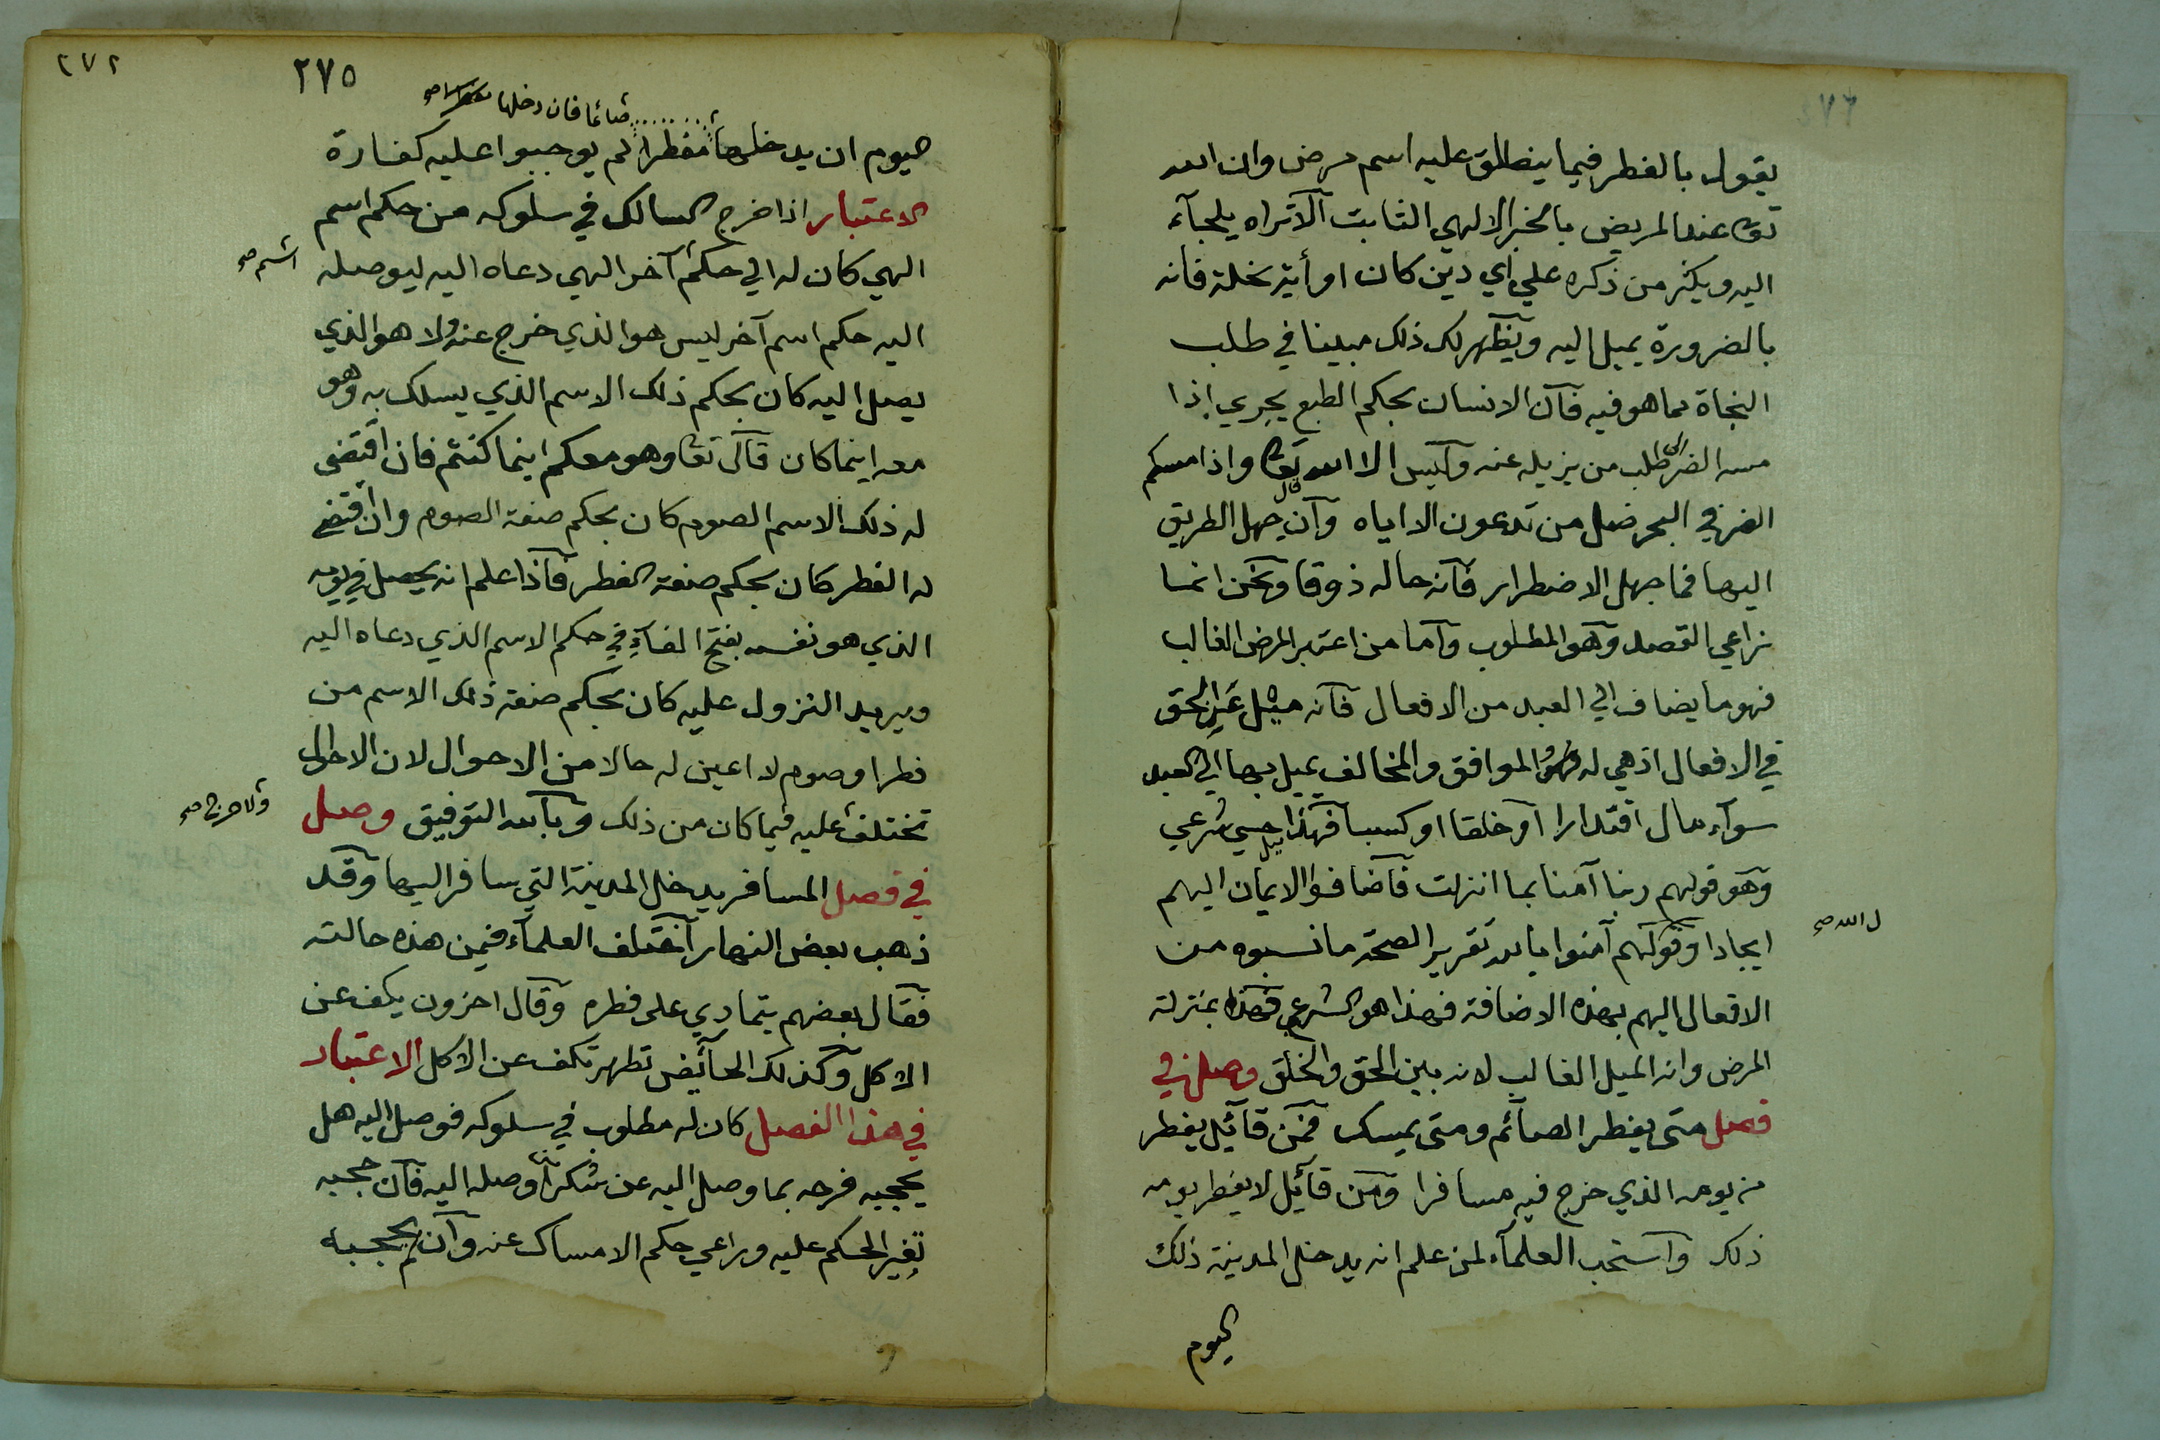 يقول بالفطر فيما ينطلق عليه اسم مرض وان الله
تعا عند المريض بالخبر الالهي الثابت الا تراه يلجآء
اليه ويكثر من ذكره علي اي دين كان او أية نحلة فانه
بالضرورة يميل اليه ويظهر لك ذلك مبينا في طلب
النجاة مما هو فيه فان الانسان بحكم الطبع يجري اذا
مسه الضر طلب من يزيله عنه وليس الا الله تعا قال واذا مسكم
الضر في البحر ضل من تدعون الا اياه وان جهل الطريق
اليها فما جهل الاضطرار فانه حاله ذوقا ونحن انما
نراعي القصد وهو المطلوب واما من اعتبر المرض الغالب
فهو ما يضاف الي العبد من الافعال فانه ميل عن الحق
في الافعال اذ هي له الموافق والمخالف يميل بها الي العبد
سوآء مال اقتدارا او خلقا او كسبا فهذا ميل حسي شرعي
وهو قولهم ربنا آمنا بما انزلت فاضافوا الايمان اليهم
ايجادا وقولهم آمنوا بالله تقريرا لصحة ما نسبوه من
ل الله صح
الافعال اليهم بهذه الاضافة فهذا هو الشرعي فهذا بمنزلة
المرض وانه الميل الغالب لانه بين الحق والخلق وصل في
فصل متى يفطر الصائم ومتى يمسك فمن قآئل يفطر
من يومه الذي خرج فيه مسافرا ومن قآئل لا يفطر يومه
ذلك واستحب العلمآء لمن علم انه يدخل المدينة ذلك
اليوم
٢٧٢
٢٧٥
صائما فان دخلها
اليوم ان يدخلها مفطرا لم يوجبوا عليه كفارة
الاعتبار اذا خرج السالك في سلوكه من حكم اسم
الهي كان له الي حكم آخر الهي دعاه اليه ليوصله
اسم صح
اليه حكم اسم آخر ليس هو الذي خرج عنه ولا هو الذي
يصل اليه كان بحكم ذلك الاسم الذي يسلك به وهو
معه اينما كان قال تعا وهو معكم اينما كنتم فان اقتضى
له ذلك الاسم الصوم كان بحكم صفة الصوم وان اقتضى
له الفطر كان بحكم صفة الفطر فاذا علم انه يحصل في يومه
الذي هو نفسه بفتح الفآء في حكم الاسم الذي دعاه اليه
ويريد النزول عليه كان بحكم صفة ذلك الاسم من
فطر او صوم لا اعين له حالا من الاحوال لان الاحوال
تختلف عليه فيما كان من ذلك وبالله التوفيق وصل
ولا حرج صح
في فصل المسافر يدخل المدينة التي سافر اليها وقد
ذهب بعض النهار اختلف العلمآء فيمن هذه حالته
فقال بعضهم يتمادي على فطره وقال اخرون يكف عن
الاكل وكذلك الحآئض تطهر تكف عن الاكل الاعتبار
في هذا الفصل كان له مطلوب في سلوكه فوصل اليه هل
يحجبه فرحه بما وصل اليه عن شكر من اوصله اليه فان حجبه
تغير الحكم عليه وراعي حكم الامساك عنه وان لم يحجبه